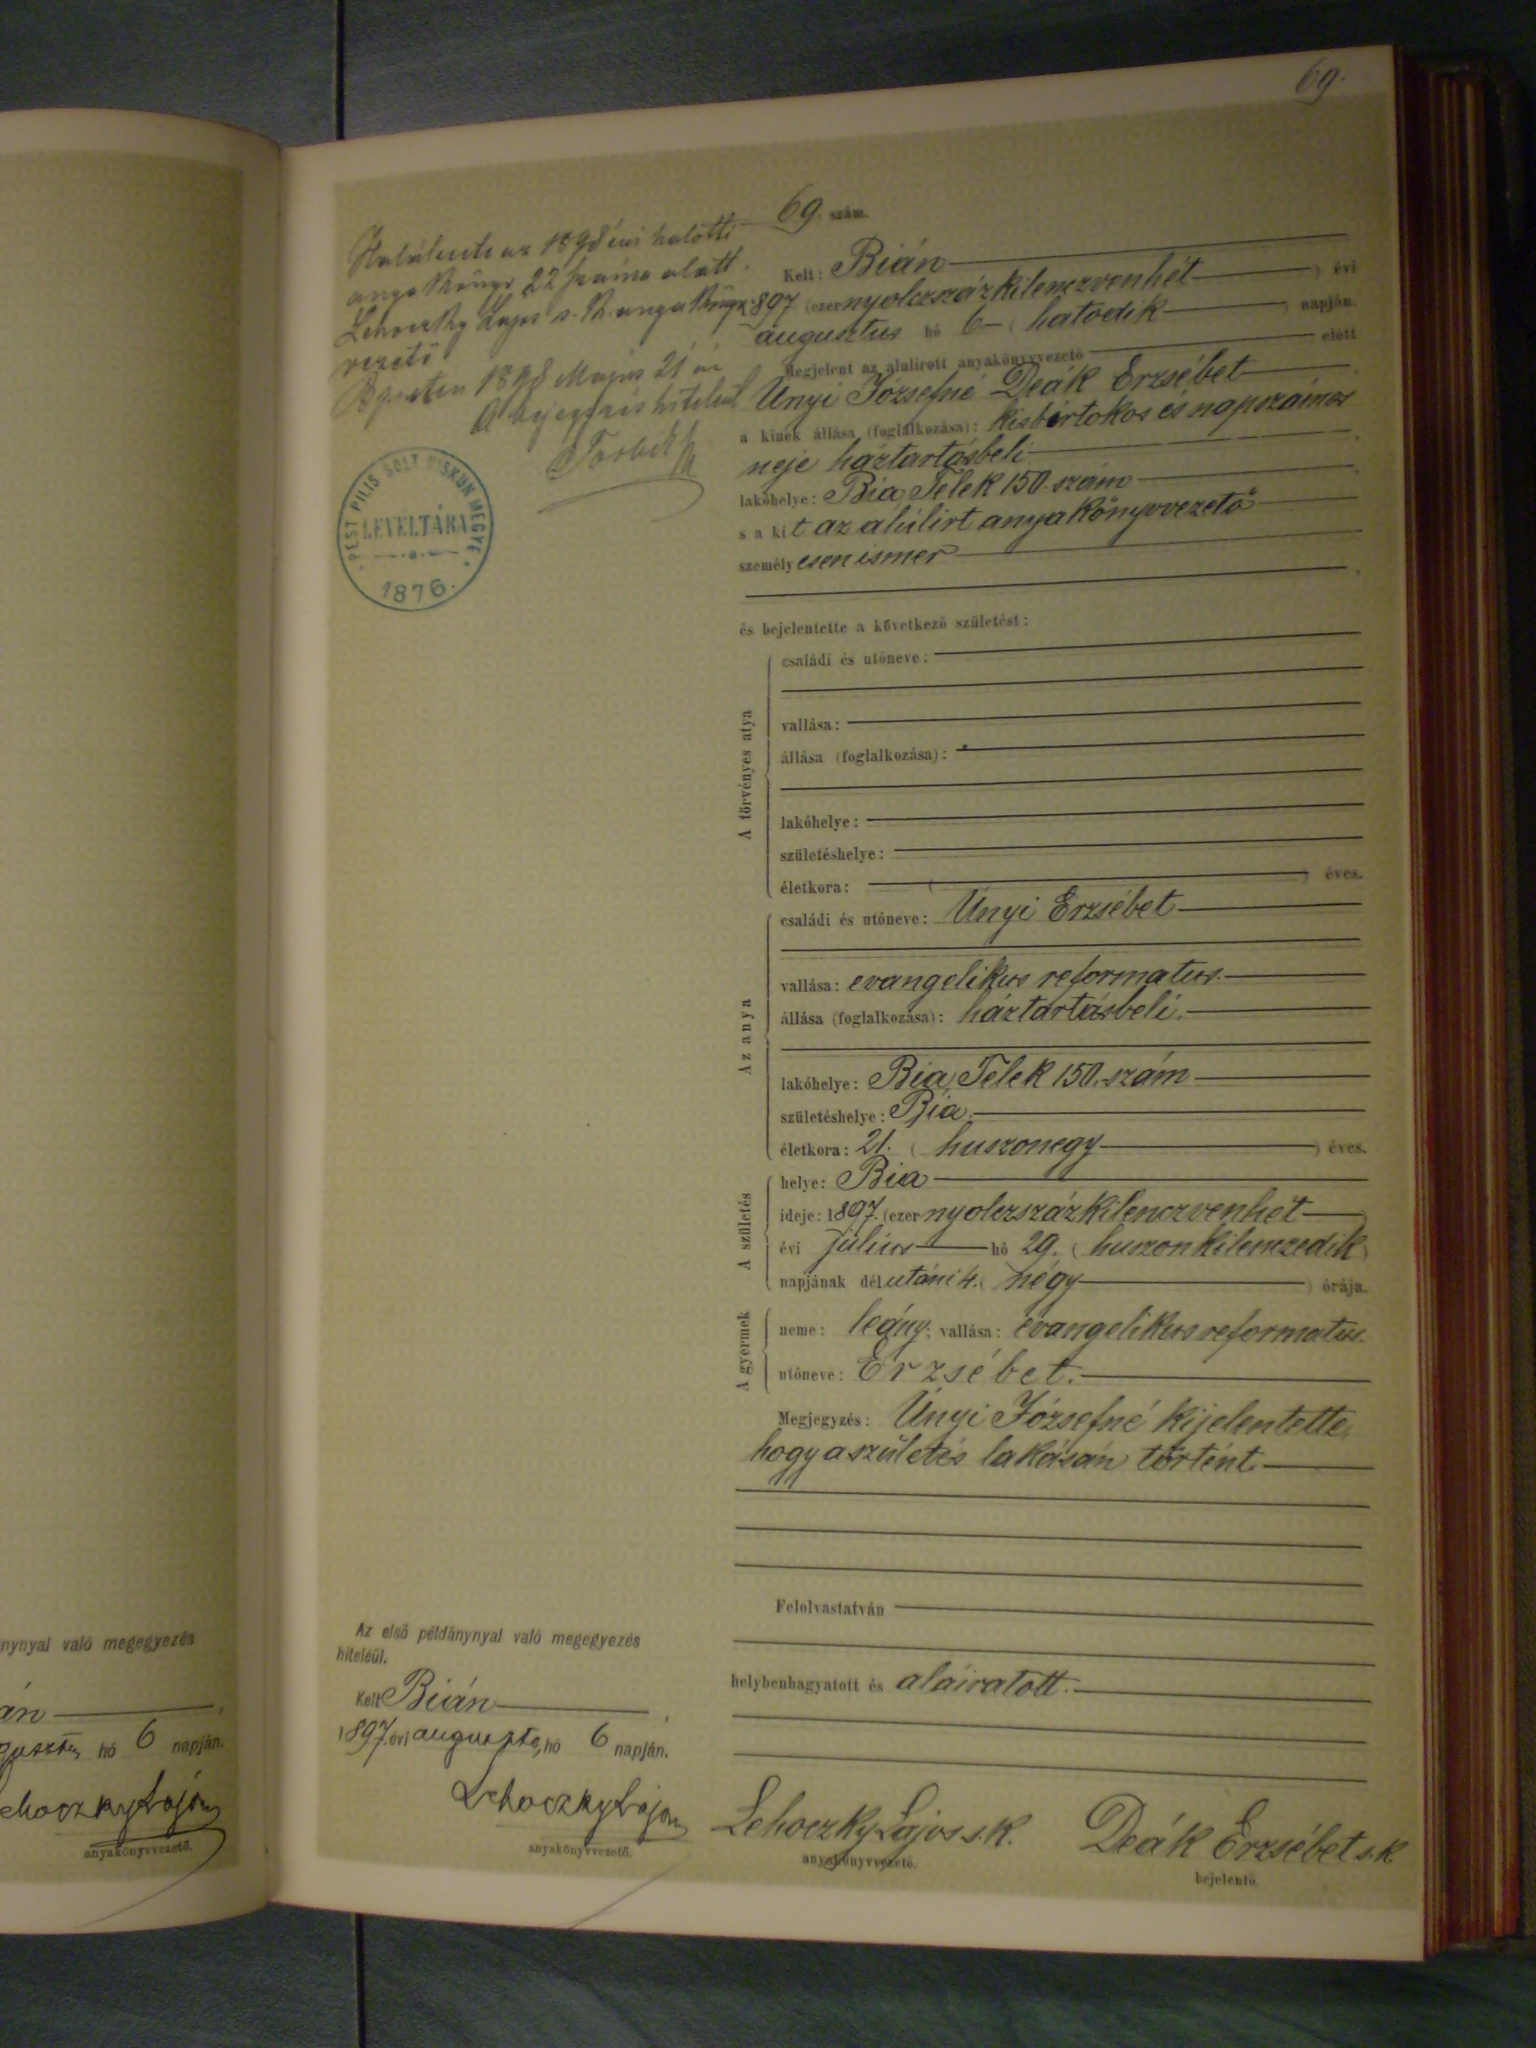 69.
69. szám.
Kelt: Bián
1897. (ezernyolczszázkilenczvenhét) évi
augusztus hó 6 (hatodik) napján.
Megjelent az alulirott anyakönyvvezető előtt
Unyi Józsefné Deák Erzsébet
a kinek állása (foglalkozása): kisbirtokos és napszámos
neje háztartásbeli
lakóhelye: Bia, Telek 150. szám
s a kit az alúlirt anyakönyvvezető
személyesen ismer
és bejelentette a következő születést:
A törvényes atya
családi és utóneve:
vallása:
állása (foglalkozása):
lakóhelye:
születéshelye:
életkora: ( ) éves.
Az anya
családi és utóneve: Unyi Erzsébet
vallása: evangelikus reformatus.
állása (foglalkozása): háztartásbeli.
lakóhelye: Bia, Telek 150. szám
születéshelye: Bia.
életkora: 21. (huszonegy) éves.
A születés
helye: Bia
ideje: 1897. (ezernyolczszázkilenczvenhét)
évi július hó 29. (huszonkilenczedik)
napjának délutáni 4. (négy) órája.
A gyermek
neme: leány; vallása: evangelikus reformatus.
utóneve: Erzsébet.
Megjegyzés: Unyi Józsefné kijelentette,
hogy a születés lakásán történt.
Felolvastatván
helybenhagyatott és aláiratott.
Lehoczky Lajos s.k.
anyakönyvvezető.
Deák Erzsébet s.k.
bejelentő.
Halálesete az 1898 évi halotti
anyakönyv 22 száma alatt.
Lehoczky Lajos s. k. anyakönyv
vezető
1898 Május 21 én
A bejegyzés hiteléül
PEST PILIS SOLT KISKUN MEGYE
LEVÉLTÁRA
1876.
Az első példánynyal való megegyezés
hiteléül.
Kelt Bián
1897. évi augusztus hó 6 napján.
Lehoczky Lajos
anyakönyvvezető.
nynyal való megegyezés
án
gusztus hó 6 napján.
ehoczky Lajos
anyakönyvvezető.